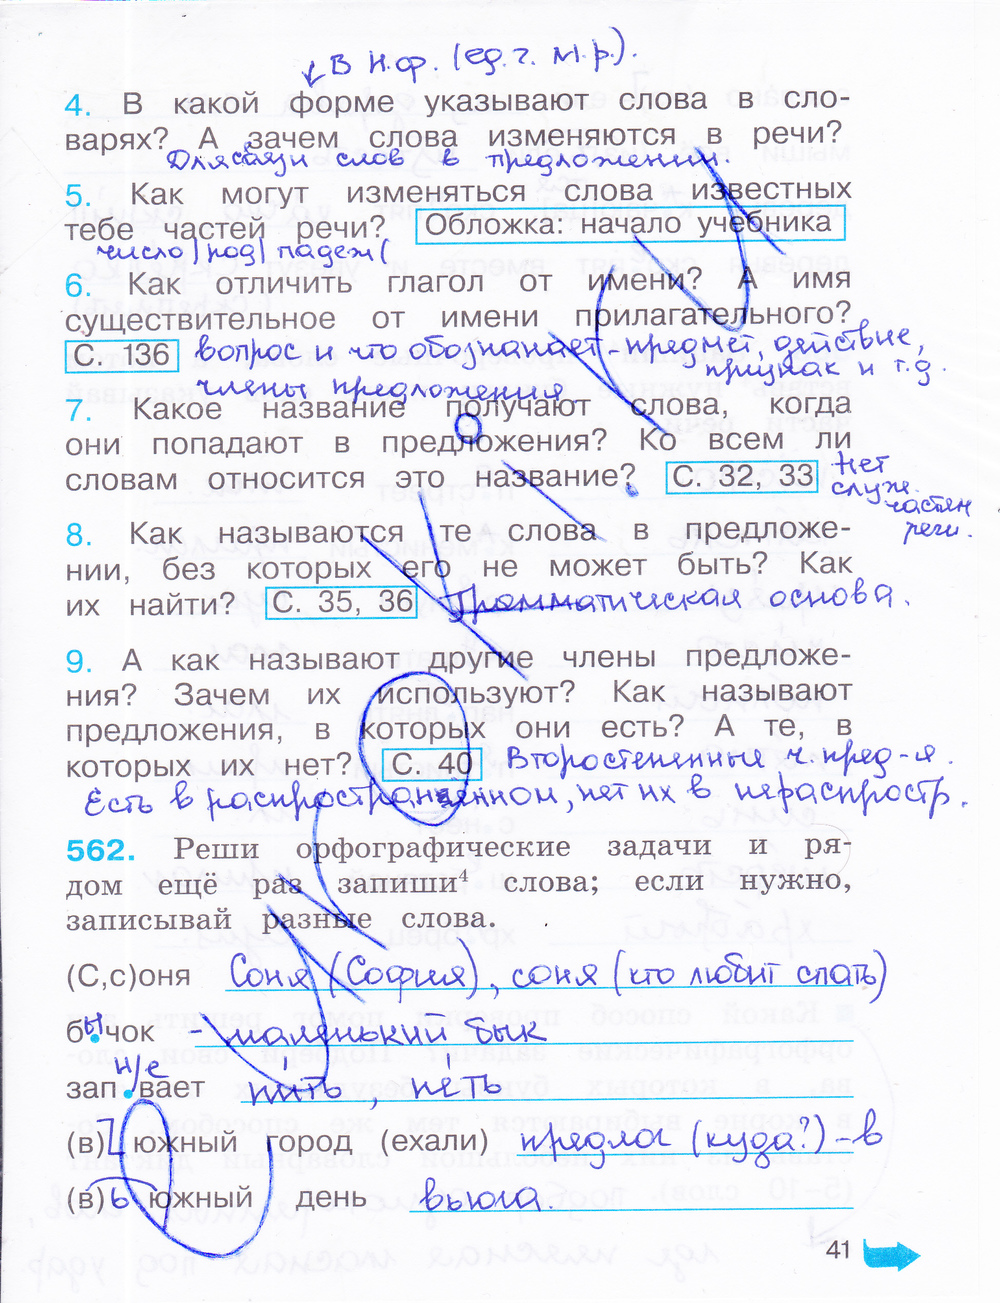 В н.ф. (ед.ч. м.р).
4. В какой форме указывают слова в сло-
варях? А зачем слова изменяются в речи?
Для связи слов в предложении.
5. Как могут изменяться слова известных
тебе частей речи? Обложка: начало учебника
число | род | падеж (
6. Как отличить глагол от имени? А имя
существительное от имени прилагательного?
С. 136 вопрос и что обознапает - предмет, действие,
признак и т.д.
члены предложения
7. Какое название получают слова, когда
они попадают в предложения? Ко всем ли
словам относится это название? С. 32, 33 Нет
служ.
частен
речи.
8. Как называются те слова в предложе-
нии, без которых его не может быть? Как
их найти? С. 35, 36 Грамматическая основа.
9. А как называют другие члены предложе-
ния? Зачем их используют? Как называют
предложения, в которых они есть? А те, в
которых их нет? С. 40 Второстепенные ч. пред-я.
Есть в распространённом, нет их в нераспростр.
562. Реши орфографические задачи и ря-
дом ещё раз запиши⁴ слова; если нужно,
записывай разные слова.
(С,с)оня Соня (София), соня (кто любит спать)
бычок - маленький бык
зап и/е вает пить, петь
(в) южный город (ехали) предлог (куда?) - в
(в)ь южный день вьюга.
41